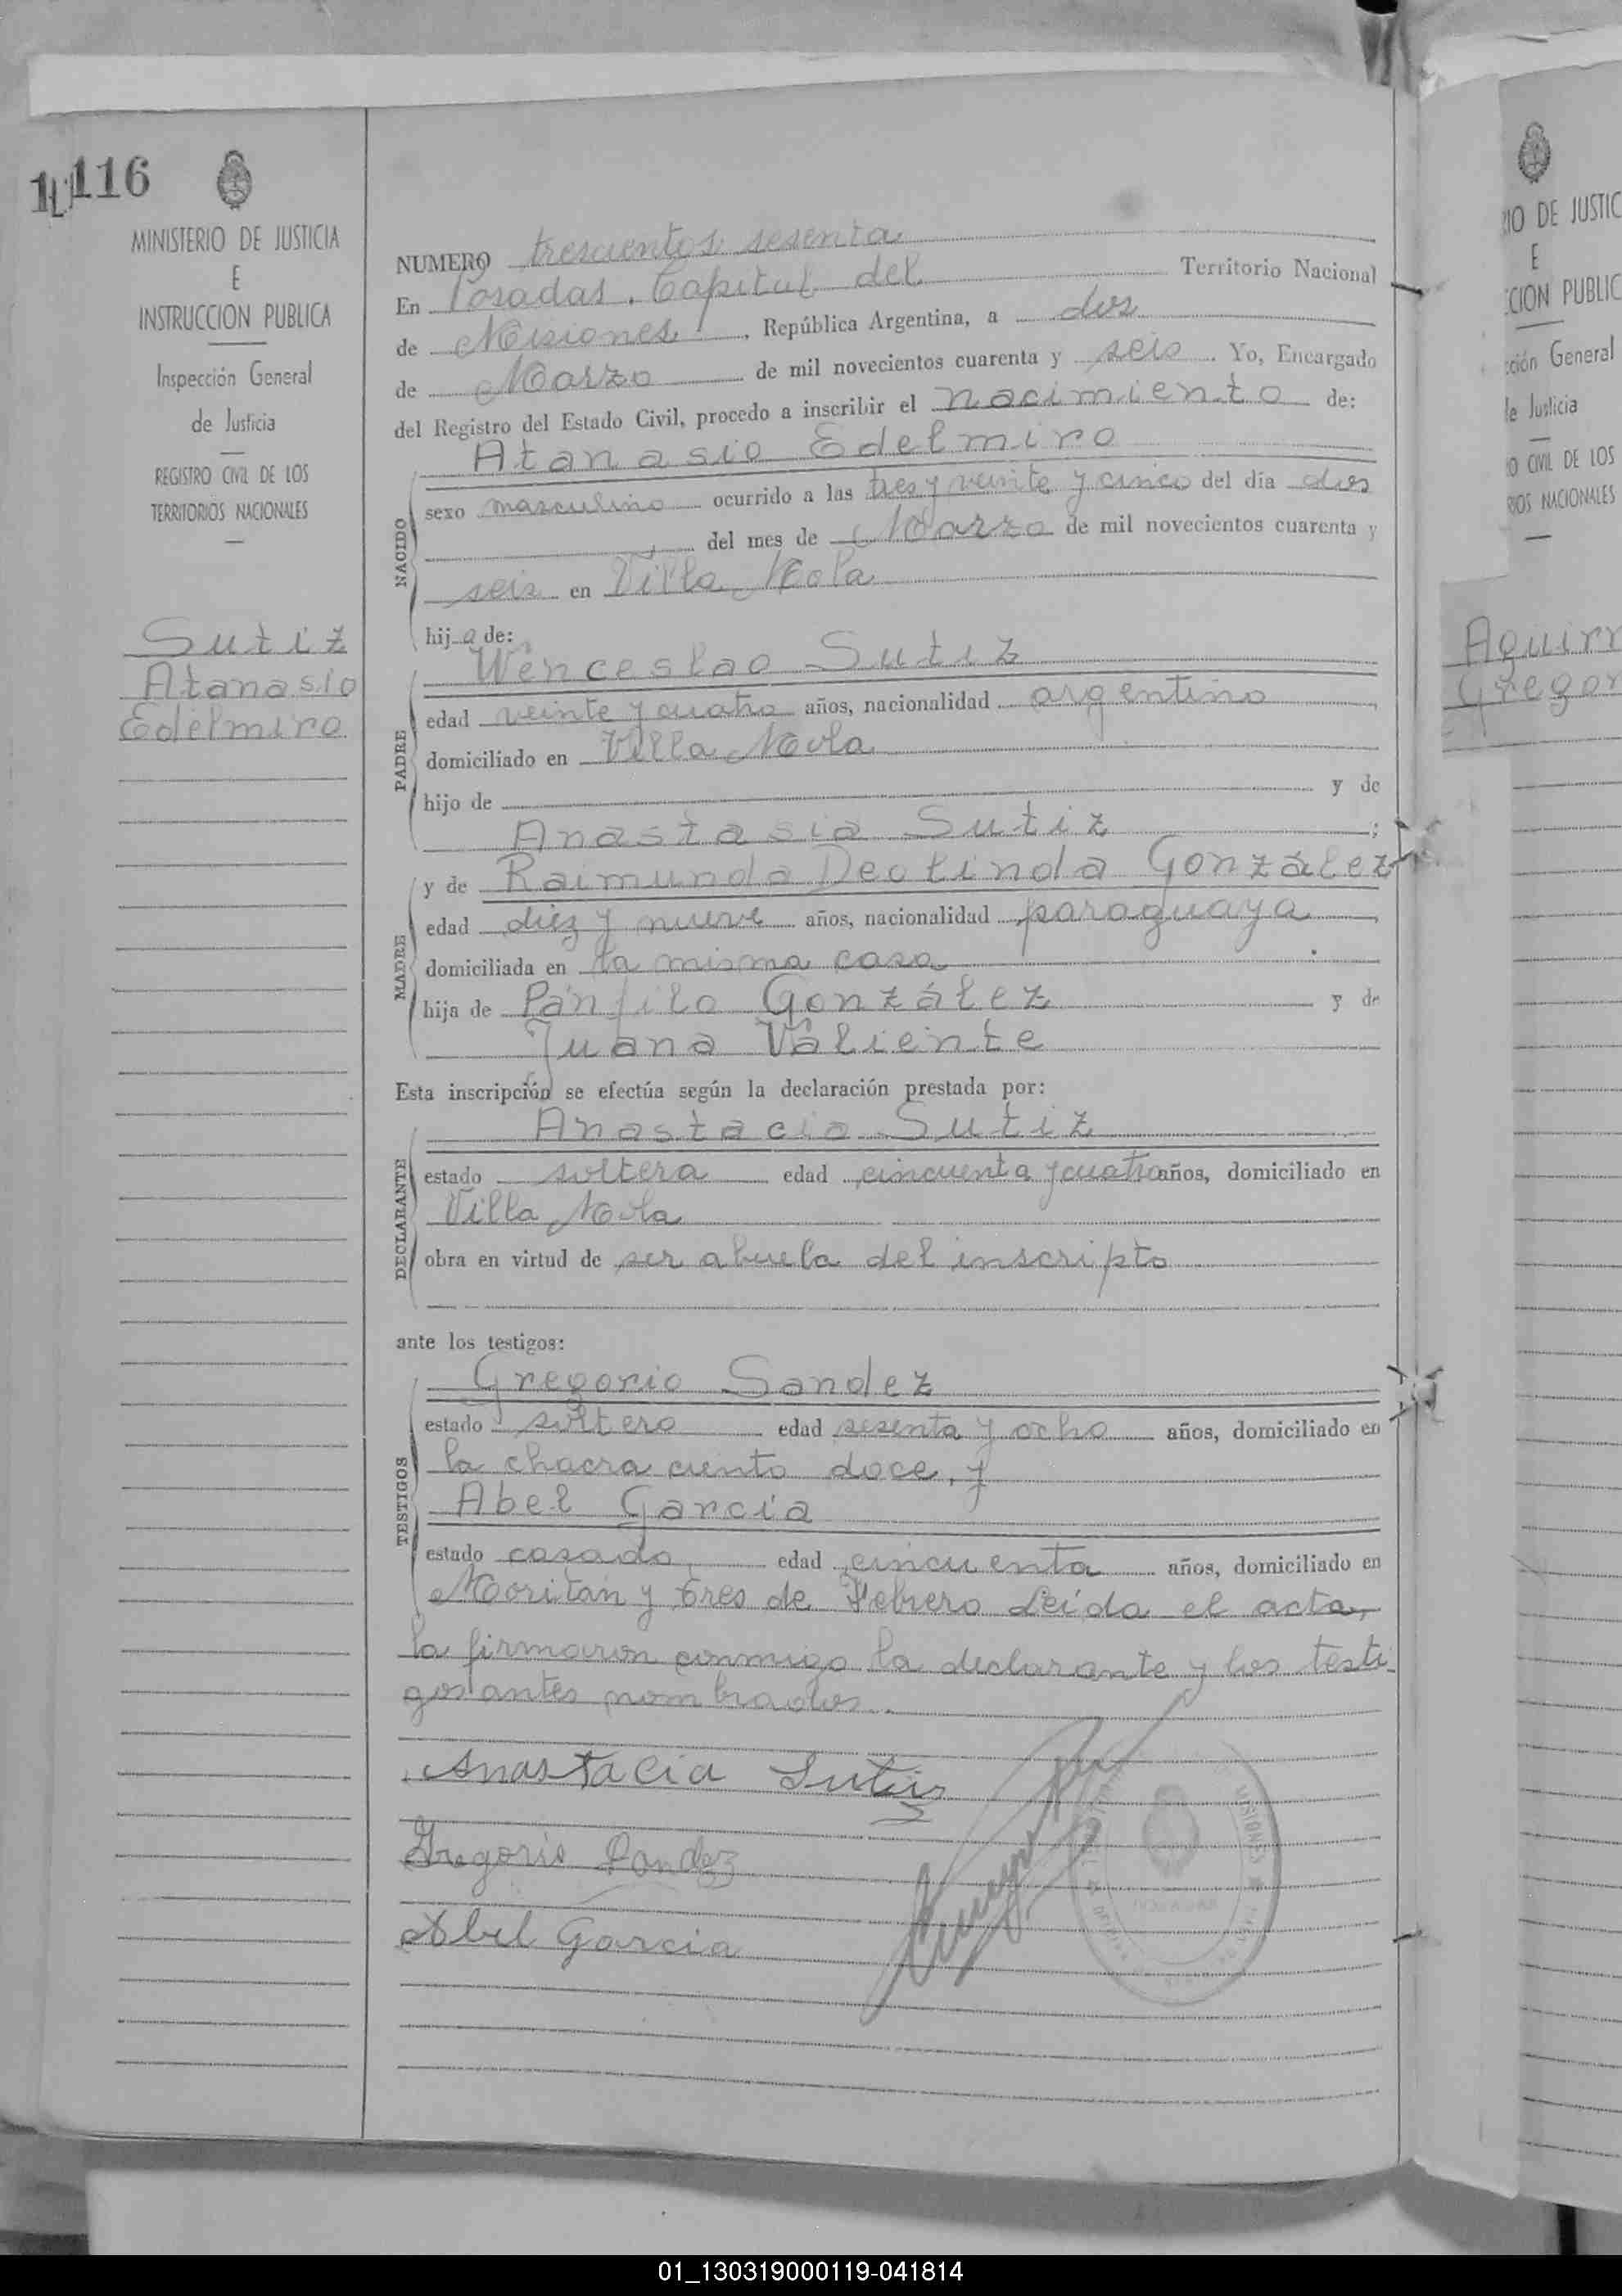 116
MINISTERIO DE JUSTICIA
E
INSTRUCCION PUBLICA
Inspección General
de Justicia
REGISTRO CIVIL DE LOS
TERRITORIOS NACIONALES
Sutiz
Atanasio
Edelmiro
NUMERO trescientos sesenta
En Posadas, Capital del Territorio Nacional
de Misiones, República Argentina, a dos
de Marzo de mil novecientos cuarenta y seis. Yo, Encargado
del Registro del Estado Civil, procedo a inscribir el nacimiento de:
NACIDO
Atanasio Edelmiro
sexo masculino ocurrido a las tres y veinte y cinco del día dos
del mes de Marzo de mil novecientos cuarenta y
seis en Villa Mola
hijo de:
PADRE
Wenceslao Sutiz
edad veinte y cuatro años, nacionalidad argentino
domiciliado en Villa Mola
hijo de y de
Anastasia Sutiz;
MADRE
y de Raimunda Deolinda González
edad diez y nueve años, nacionalidad paraguaya
domiciliada en la misma casa
hija de Pánfilo González y de
Juana Valiente
Esta inscripción se efectúa según la declaración prestada por:
DECLARANTE
Anastacia Sutiz
estado soltera edad cincuenta y cuatro años, domiciliado en
Villa Mola
obra en virtud de ser abuela del inscripto
ante los testigos:
TESTIGOS
Gregorio Sandez
estado soltero edad sesenta y ocho años, domiciliado en
la chacra ciento doce, y
Abel García
estado casado, edad cincuenta años, domiciliado en
Moritán y tres de Febrero Leída el acta,
la firmaron conmigo la declarante y los testi-
gos antes nombrados.
Anastacia Sutiz
Gregorio Sandez
Abel Garcia
MISIONES
RIO DE JUSTIC
E
CCION PUBLIC
cción General
de Justicia
RO CIVIL DE LOS
RIOS NACIONALES
Aguirr
Gregor
01_130319000119-041814